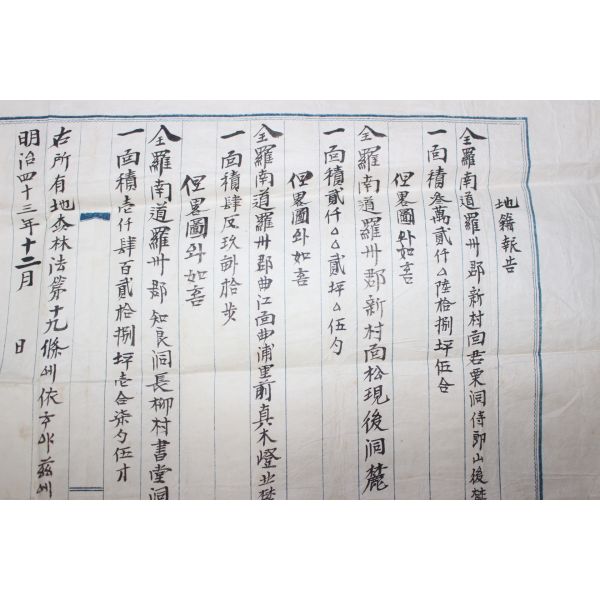 地籍報告
全羅南道羅州郡新村面君栗洞侍郎山後
一面積叁萬貳仟△陸拾捌坪伍合
但畧圖와如홈
全羅南道羅州郡新村面松現後洞麓
一面積貳仟△△貳坪△伍勺
但畧圖와如홈
全羅南道羅州郡曲江面曲浦里前真木燈北
一面積肆反玖卧拾步
但畧圖와如홈
全羅南道羅州郡知良洞長柳村書堂洞
一面積壱仟肆百貳拾捌坪壱合柒勺伍才
右所有地森林法第十九條에依하야茲에
明治四十三年十二月 日